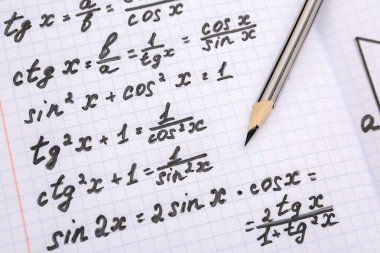 tg x = a/b = sin x/cos x
ctg x = b/a = 1/tg x = cos x/sin x
sin² x + cos² x = 1
tg² x + 1 = 1/cos² x
ctg² x + 1 = 1/sin² x
sin 2x = 2 sin x · cos x =
= 2 tg x/1 + tg² x
a